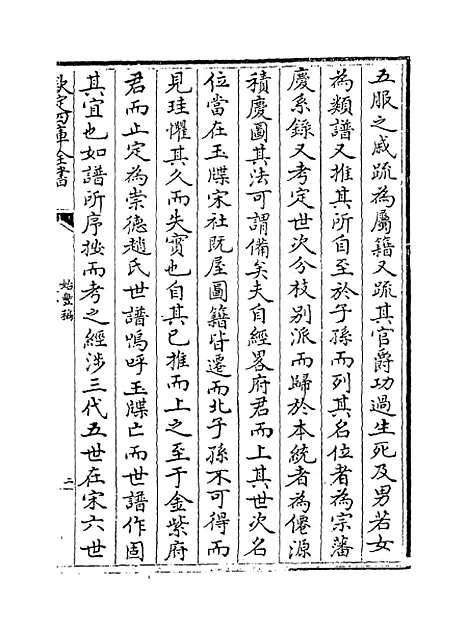 五服之戚疏為屬籍又疏其官爵功過生死及男若女
為類譜又推其所自至於子孫而列其名位者為宗藩
慶系錄又考定世次分枝別派而歸於本統者為僊源
積慶圖其法可謂備矣夫自經畧府君而上其世次名
位當在玉牒宋社既屋圖籍皆遷而北子孫不可得而
見珪懼其久而失實也自其已推而上之至于金紫府
君而止定為崇德趙氏世譜嗚呼玉牒亡而世譜作固
其宜也如譜所序按而考之經涉三代五世在宋六世
欽定四庫全書
始豐稿
二